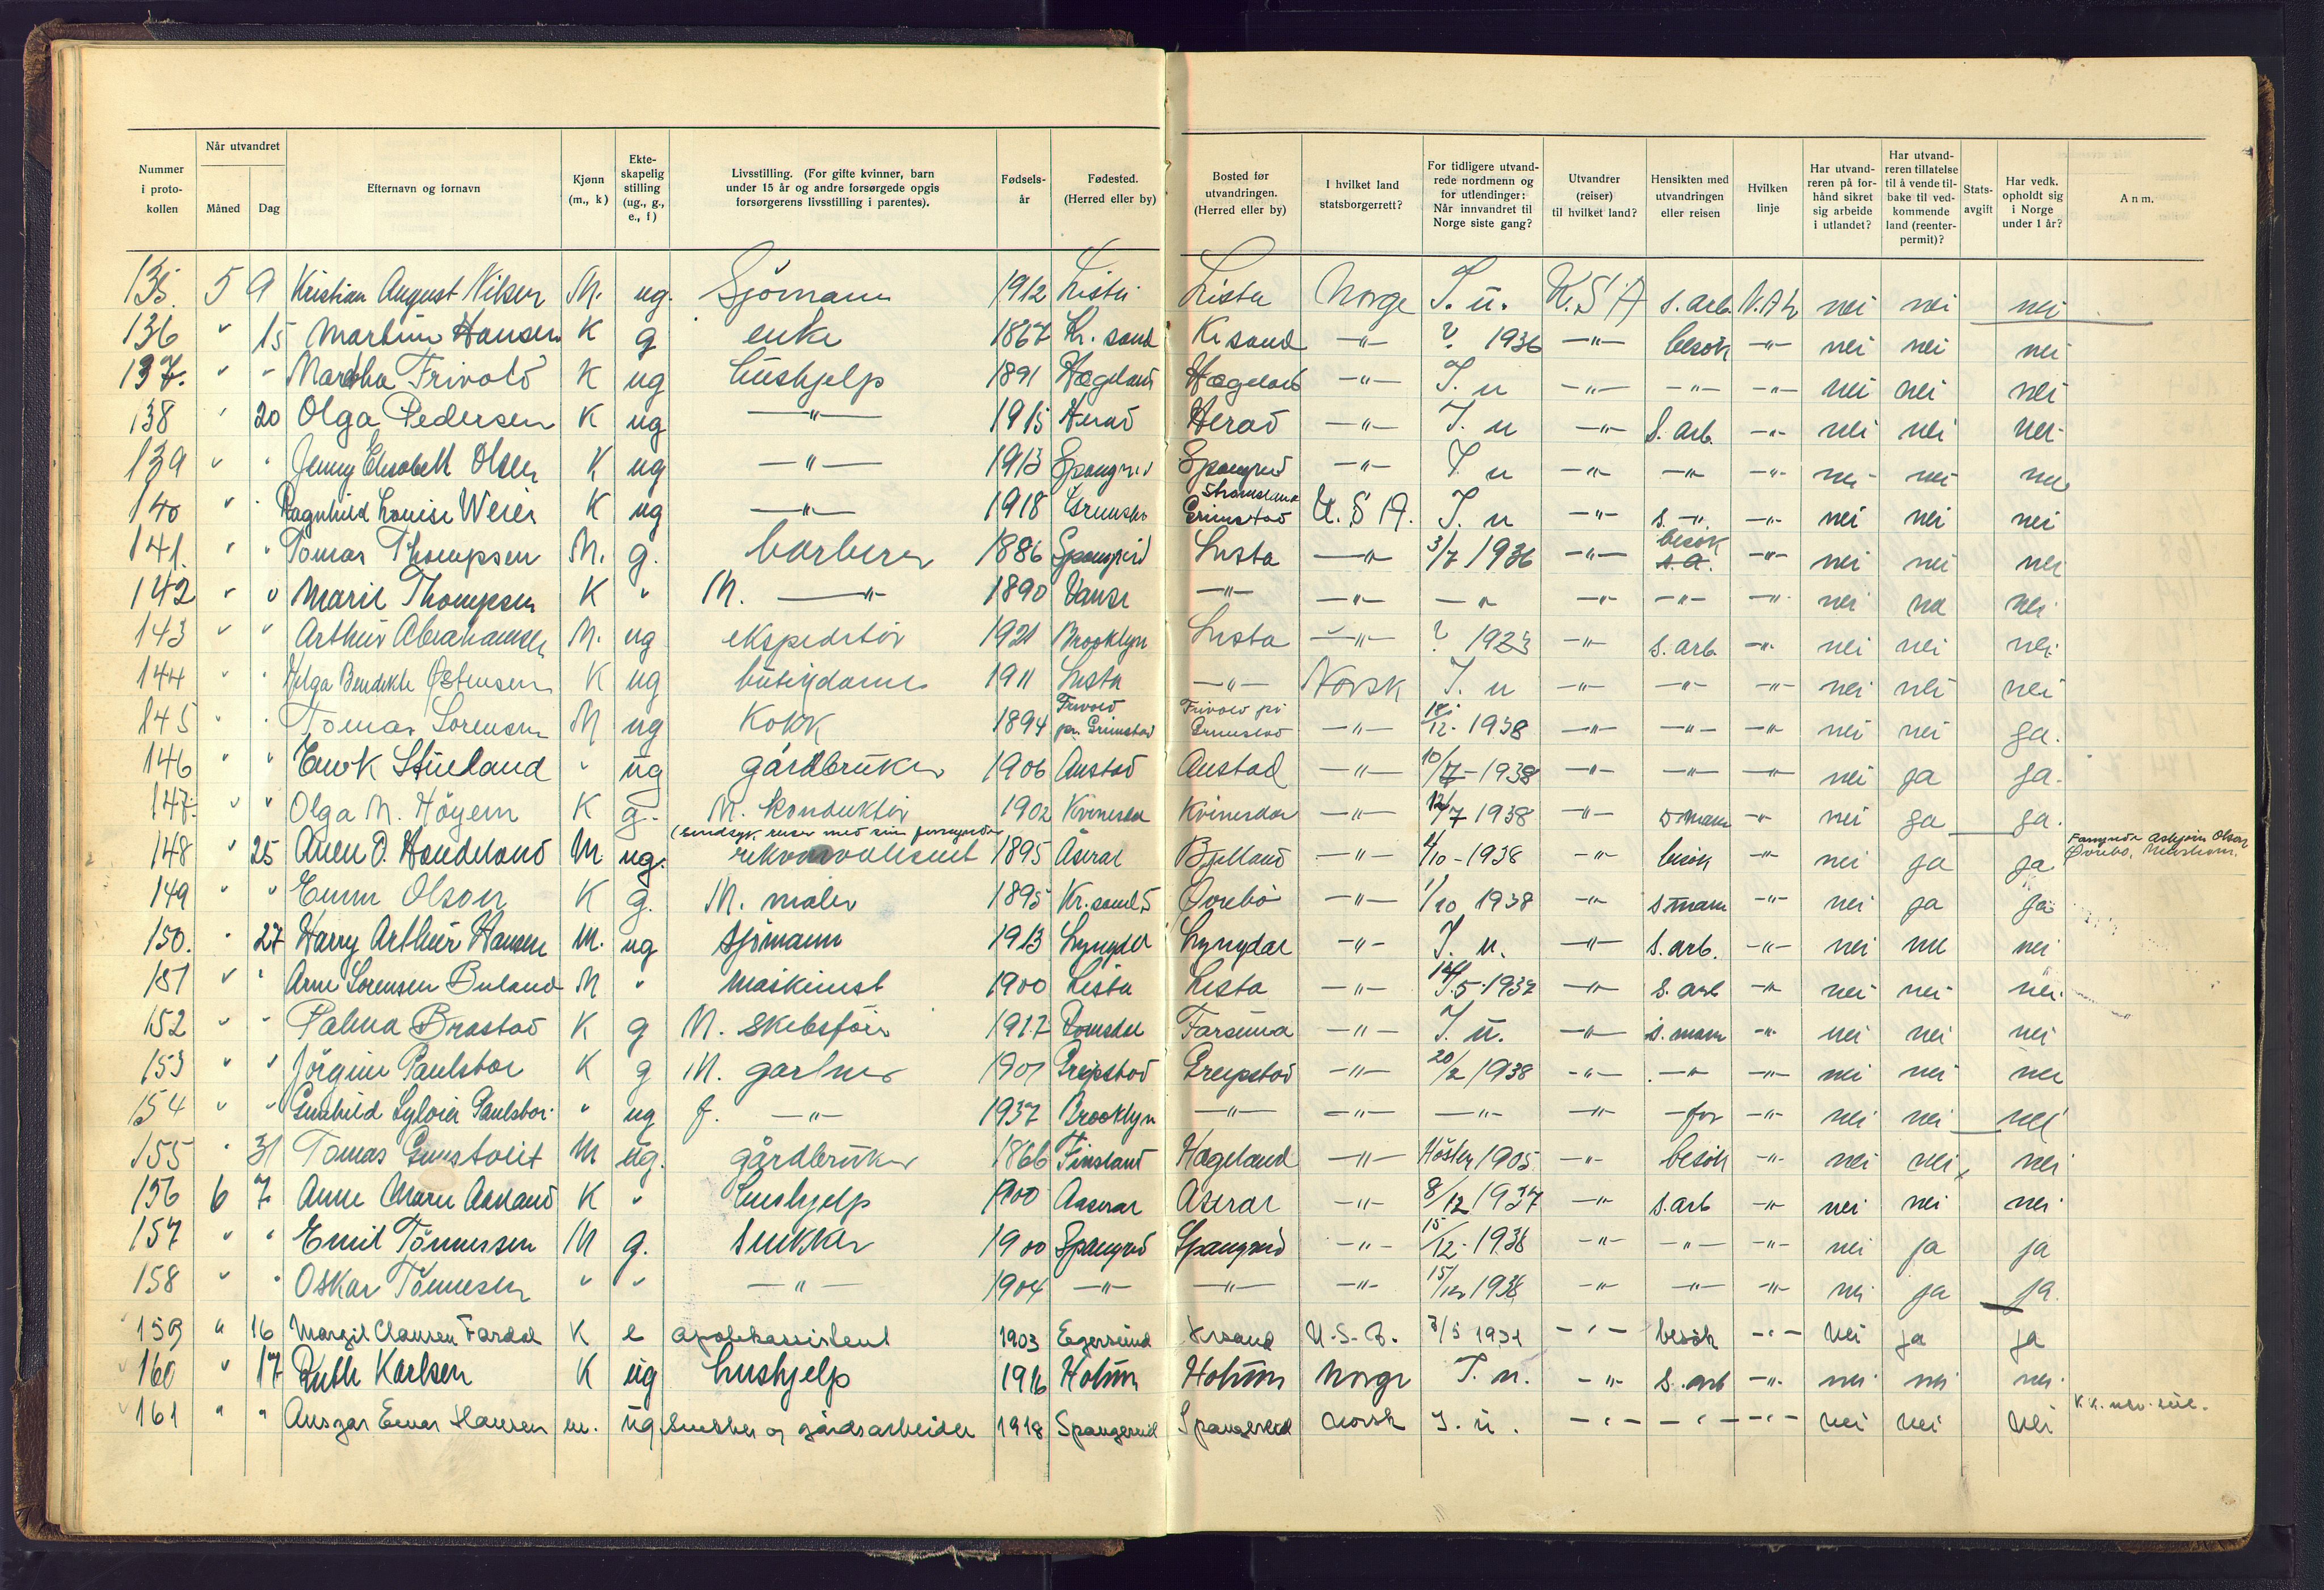 Nummer i protokollen | Når utvandret Måned | Dag | Efternavn og fornavn | Kjønn (m., k) | Ekteskapelig stilling (ug., g., e., f) | Livsstilling. (For gifte kvinner, barn under 15 år og andre forsørgede opgis forsørgerens livsstilling i parentes). | Fødselsår | Fødested. (Herred eller by) | Bosted før utvandringen. (Herred eller by) | I hvilket land statsborgerrett? | For tidligere utvandrede nordmenn og for utlendinger: Når innvandret til Norge siste gang? | Utvandrer (reiser) til hvilket land? | Hensikten med utvandringen eller reisen | Hvilken linje | Har utvandreren på forhånd sikret sig arbeide i utlandet? | Har utvandreren tillatelse til å vende tilbake til vedkommende land (reenterpermit)? | Statsavgift | Har vedk. opholdt sig i Norge under 1 år? | Anm.
135. 5 9 Kristian August Nilsen M. ug. Sjömann 1912 Lista Lista Norge I. u. U.S.A s. arb. N.A.L nei nei nei
136 " 15 Hansen K g enke 1867 Kr. sand Kr sand -"- ? 1936 -"- besök -"- nei nei nei
137. " " Frivold K ug hushjelp 1891 Hægeland Hægeland -"- I. u -"- -"- -"- nei nei nei
138 " 20 Olga Pedersen K ug -"- 1915 Herad Herad -"- I. u -"- s. arb. -"- nei nei nei
139 " " Jenny Elisabeth Olsen K ug -"- 1913 Spangreid Spangreid -"- I. u -"- -"- -"- nei nei nei
140 " " Ragnhild Louise K ug -"- 1918 Grimstad Grimstad U.S.A. I. u -"- s. -"- -"- nei nei nei
141. " " Tomas Thompsen M. g. barberer 1886 Spangreid Lista -"- 3/7 1936 -"- besök s.a. -"- nei nei nei
142 " " Marie Thompsen K " M. -"- 1890 Vanse -"- -"- -"- -"- -"- -"- nei nei nei
143 " " Arthur Abrahamsen M. ug ekspeditör 1921 Brooklyn Lista -"- ? 1923 -"- s. arb. -"- nei nei nei
144 " " Helga Bendikte Østensen K ug butikdame 1911 Lista -"- Norsk I. u -"- -"- -"- nei nei nei
145 " " Tomas Sorensen M ug Kokk 1894 Frivold pr. Grimstad Frivold pr Grimstad -"- 12. 1938 -"- -"- -"- nei nei ja.
146 " " " ug gårdbruker 1906 Austad Austad -"- 10/7-1938 -"- -"- -"- nei ja ja.
147. " " Olga M. Höyem K g. M. konduktör 1902 Kvinesdal Kvinesdal -"- 7 1938 -"- s mann -"- nei ja ja.
148 " 25 O. Handeland M ug. (sindsyk reiser med sin formynder) 1895 Åseral Bjelland -"- /10-1938 -"- besök -"- nei ja ja Øvrebø,
149 " " Emm Olson K g. M. maler 1895 Kr.sand S Øvrebö -"- 1/10 1938 -"- s mann -"- nei ja ja
150. " 27 Harry Arthur Hansen M. ug sjömann 1913 Lyngdal Lyngdal -"- I. u. -"- s. arb. -"- nei nei nei
151 " " Arne Sorensen Buland M " Maskinist 1900 Lista Lista -"- 14/5.1937 -"- s. arb -"- nei nei nei.
152 " " Palma Brastad K g M. skibsför 1917 Farsund -"- I. u. -"- s. mann -"- nei nei nei
153 " " Jörgine Paulsbor K g M. gartner 1901 Greipstad Greipstad -"- 20/2 1938 -"- -"- -"- nei nei nei
154 " " Paulsbor " ug f. -"- 1937 Brooklyn -"- -"- -"- -"- -"- nei nei nei
155 " 31 Tomas M ug. gårdbruker 1866 Finsland Hægeland -"- Hösten 1905 -"- besök -"- nei nei nei
156 6 7 Anne Marie Aasland K " hushjelp 1900 Aaseral Aseral -"- 8/12 1937 -"- s. arb -"- nei nei nei
157 " " Emil Tönnessen M g. snekker 1900 Spangreid Spangreid -"- 15/12-1938 -"- -"- -"- nei ja ja
158 " " Oskar Tönnesen " " -"- 1904 -"- -"- -"- 15/12 1938 -"- -"- -"- nei ja ja.
159 " 16 Margit Clausen Fardal K e apotekassistent 1903 Egersund Krsand U.S.A. 3/5 193 -"- besök -"- nei ja ja
160 " 17 Ruth Karlsen K ug hushjelp 1916 Holum Holum Norge I. u. -"- s. arb -"- nei nei nei.
161 " " Ansgar Einar Hansen m. ug. gårdsarbeider 1918 Spangereid Spangereid norsk I. u. -"- -"- -"- nei nei nei